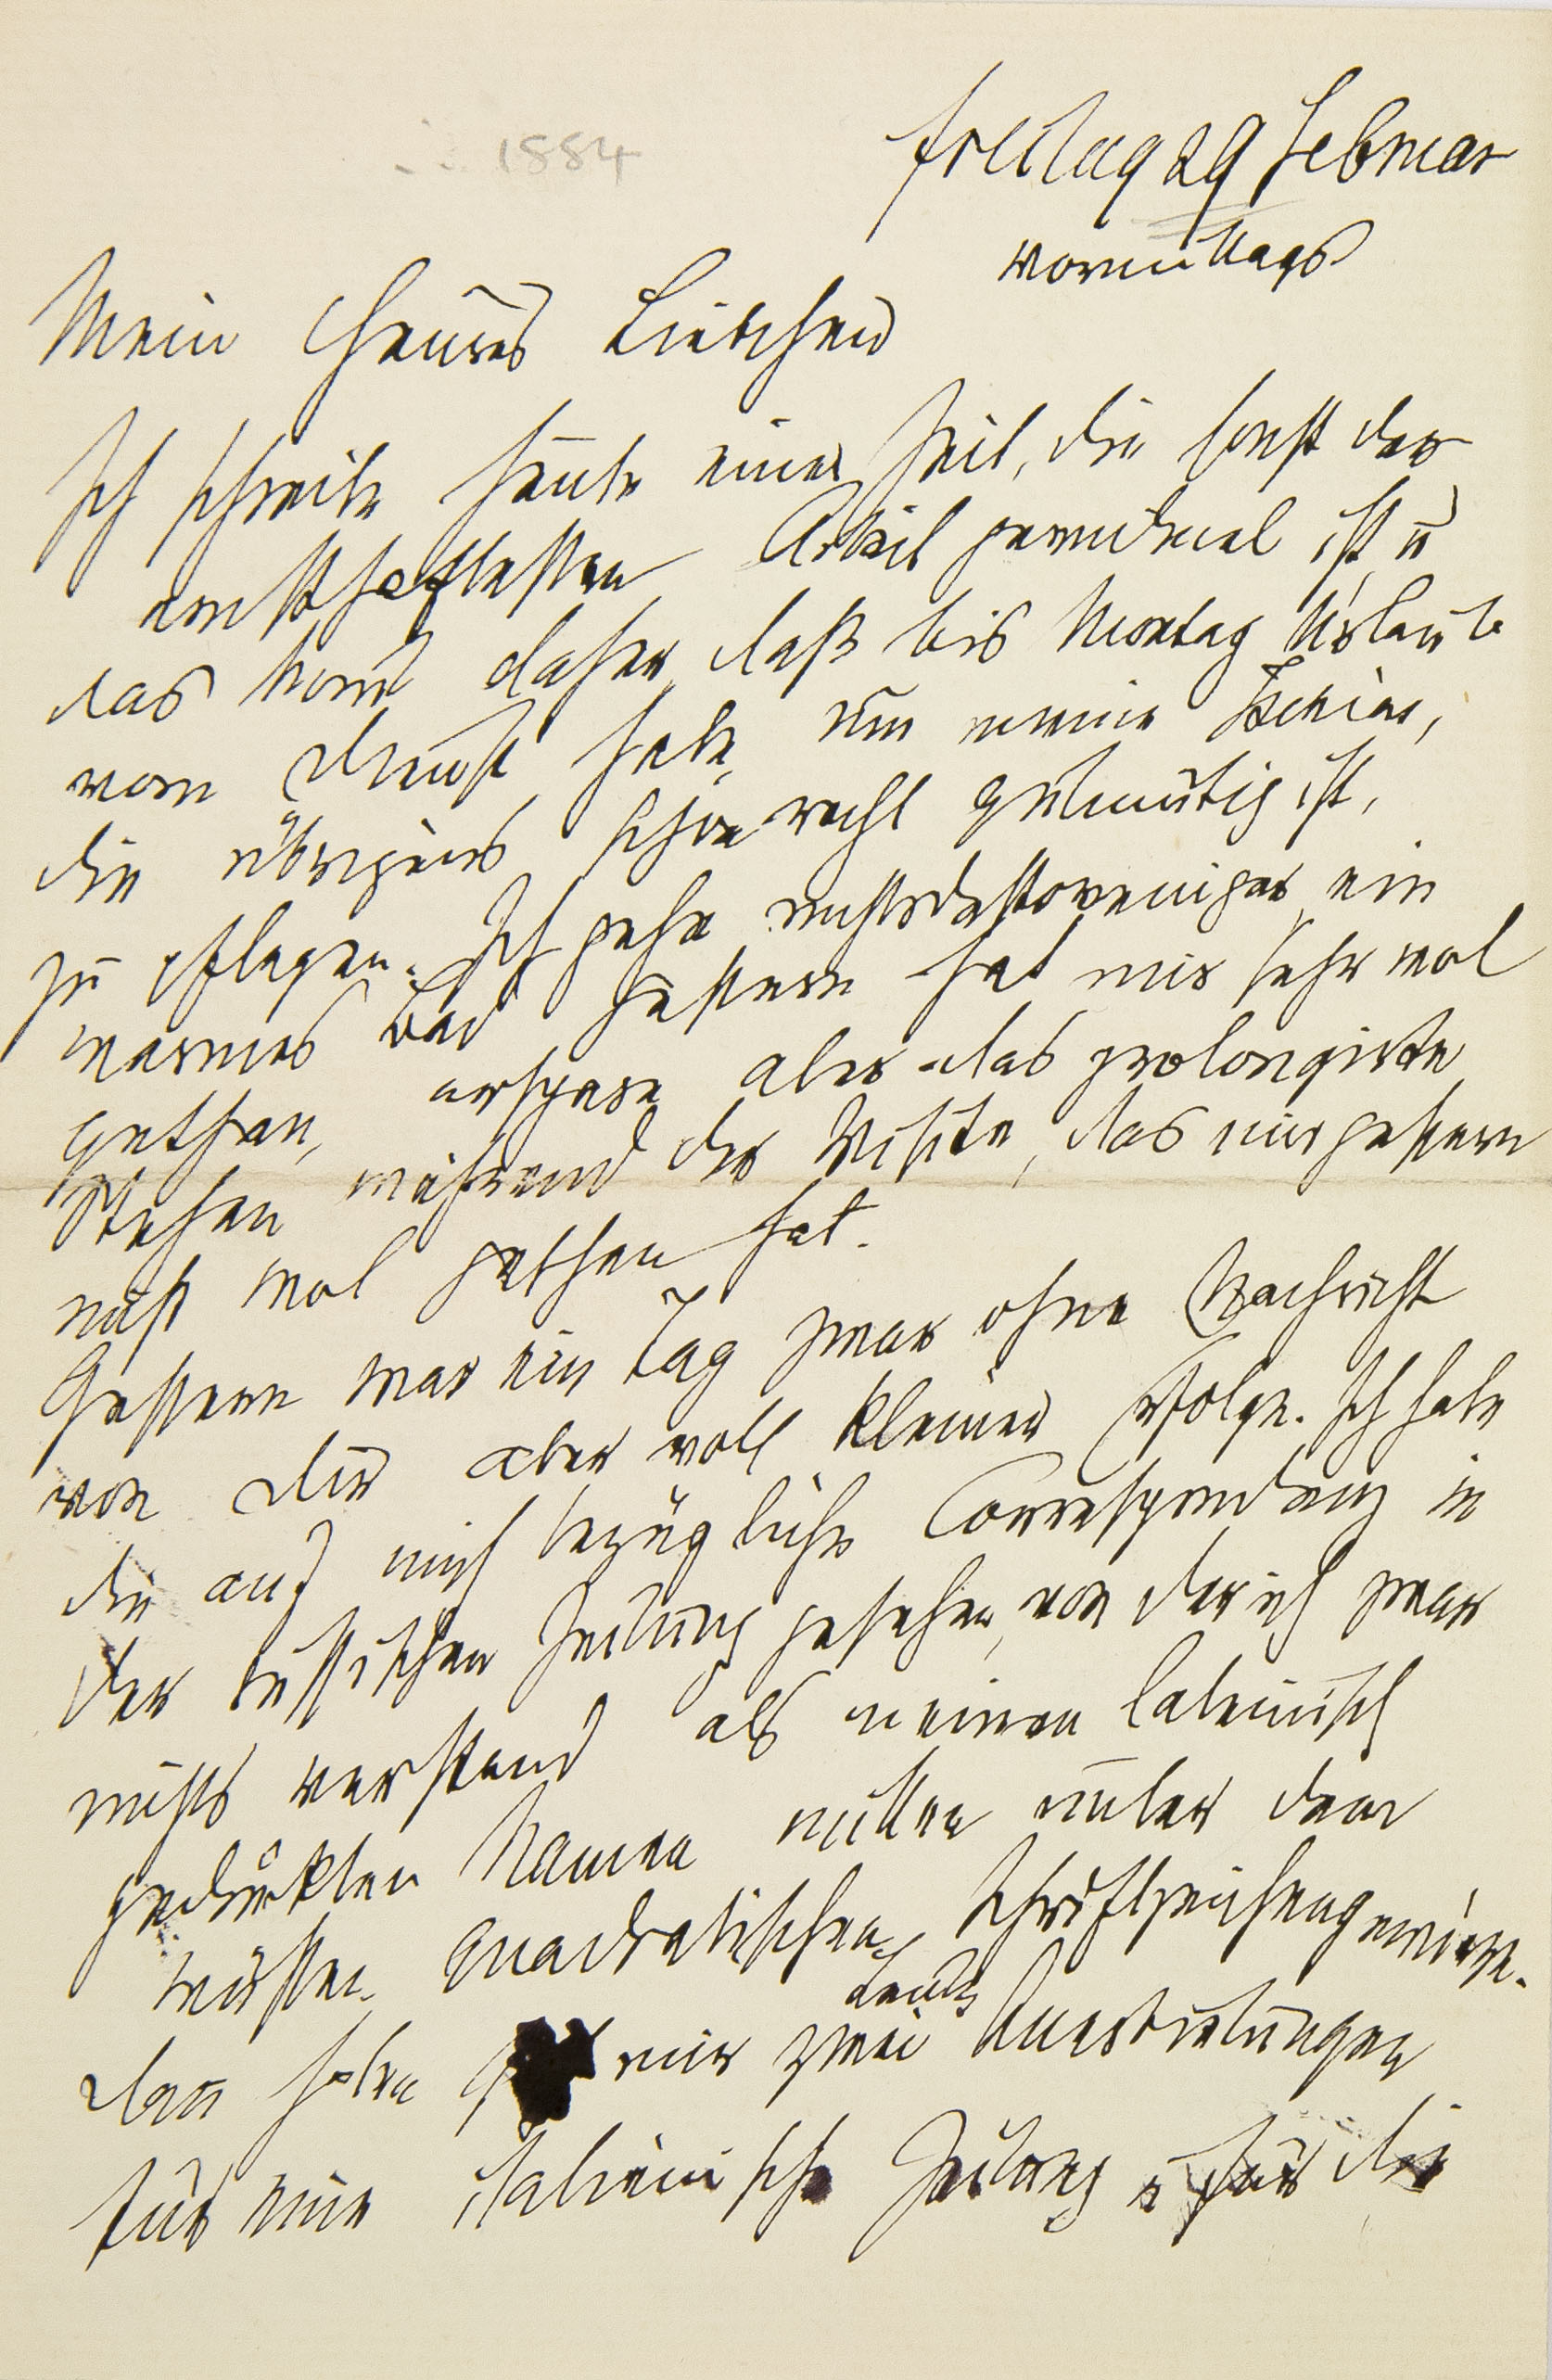 1884
Freitag 29 Februar
vormittags
Mein theures Liebchen
Ich schreibe heute einer Zeit, die sonst der
ernsthaftesten Arbeit gewidmet ist, u
das komt daher, daß bis Montag Urlaub
vom Dienst habe, um meine Ischias,
die übrigens schon recht gutmütig ist,
zu pflegen. Ich gehe nichtsdestoweniger ein
warmes Bad gestern hat mir sehr wol
gethan, erspare aber das prolongirte
Stehen während der Visite, das mir gestern
nicht wol gethan hat.
Gestern war ein Tag zwar ohne Nachricht
von Dir aber voll kleiner Erfolge. Ich habe
die auf mich bezügliche Correspondenz in
der russischen Zeitung gesehen, von der ich zwar
nichts verstand als meinen lateinisch
gedruckten Namen mitten unter dem
wüsten quadratischen Schriftzeichengewirre.
Dan haben mir zwei Leute Anerbietungen
für eine italienische Zeitung u für die